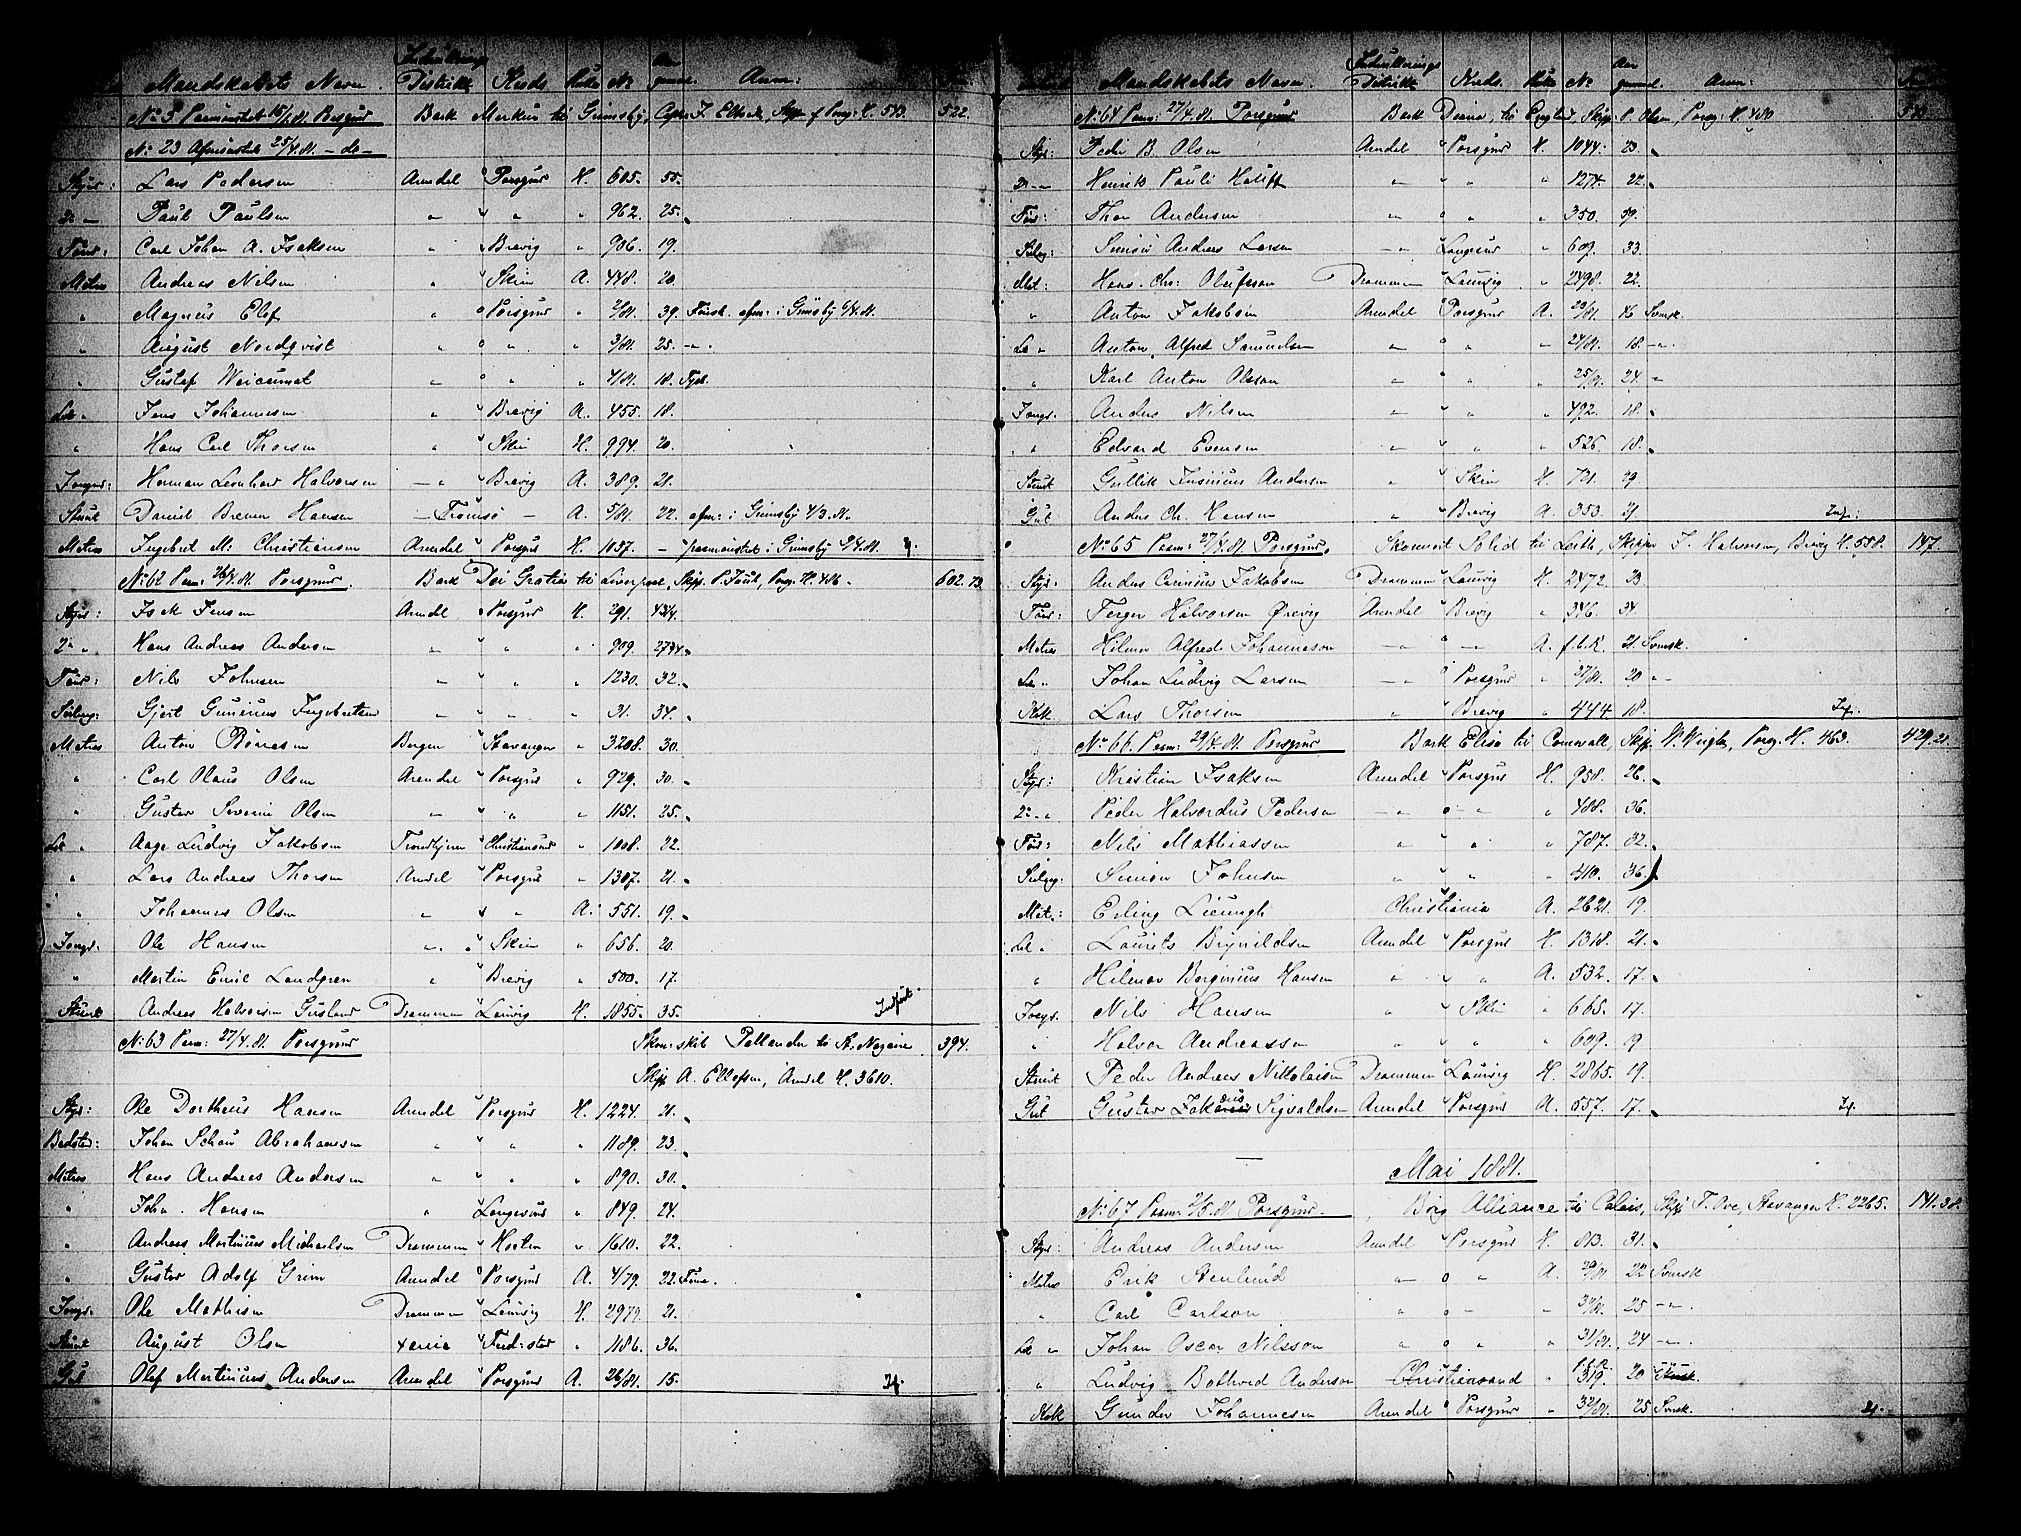 Mandskabets Navn. Indrullerings Distrikt Kreds Rulle No gammel. Anm:
No 5 Paamönstret 15/1.81. Porsgrund Bark Merkur til Grimsby, Capt. F. Ellesen, Porsg. H. 503. 522.
No 23 Afmönstret 25/4.81. - do -
Styrm: Lars Pedersen Arendal Porsgrd H. 605. 55.
2. " Paul Paulsen " " " " 962. 25.
Tömd: Carl Johan A. Isaksen " Brevig " 906. 19.
Matros Andreas Nilsen " Skien A. 448. 20.
" Magnus Elof " Porsgrd " 2/81. 39. Finsk. afm: i Grimsby 6/4.81.
" August Nordqvist " " " 3/81. 25. - " -
" Gustaf Weicumat " " " 4/81. 18. Tysk.
Let " Jens Johannesen " Brevig A. 455. 18.
" Hans Carl Thorsen " Skien H. 994. 20.
Jungm: Herman Leonhard Halvorsen " Brevig A. 389. 21.
Stuert Daniel Brenen Hansen - Tromsö - A. 5/81. 22. afm: i Grimsby 4/3.81.
Matros Ingebret M. Christiansen Arendal Porsgrd H. 1037. - paamönstret i Grimsby 9/4.81.
No 62 Paam: 26/4.81. Porsgrund. Bark Dei Gratia til Liverpool, Skipp. P. Juul, Porsg. H. 416. 602.73.
Styrm: Isak Jensen Arendal Porsgrd H. 291. 43 3/4.
2. " Hans Andreas Andersen " " " " 909. 27 3/4.
Tömd: Nils Johnsen " " " 1230. 32.
Seilmg: Gjert Gunerius Ingebretsen " " " 31. 34.
Matros Anton Bönesen Bergen Stavanger " 3208. 30.
" Carl Olaus Olsen Arendal Porsgrd " 929. 30.
" Gustav Severin Olsen " " " 1151. 25.
Let " Aage Ludvig Jakobsen Trondhjem Christiansund " 1008. 22.
" Lars Andreas Thorsen Arendal Porsgrd " 1307. 21.
" Johannes Olsen " " A. 551. 19.
Jungm: Ole Hansen " Skien " 656. 20.
" Martin Emil Landgren " Brevig " 500. 17.
Stuert Andreas Halvorsen Gusland Drammen Laurvig H. 1855. 35. Indfört.
No 63 Paam: 27/4.81. Porsgrund Skon: skib Pallander til St. Nazaire 394.
Skipp A. Ellefsen, Arendal H. 3610.
Styr: Ole Dortheus Hansen Arendal Porsgrd H. 1224. 21.
Badstm: Johan Schau Abrahamsen " " " 1189. 23.
Matros Hans Andreas Andersen " " " 890. 30.
" John Hansen " Langesund " 849. 24.
" Andreas Martinius Michaelsen Drammen Horten " 1610. 22.
" Gustav Adolf Grim Arendal Porsgrd A. 4/79. 22. Finne.
Jungm: Ole Mathisen Drammen Laurvig H. 2979. 21.
Stuert August Olsen Fredrstad " 1186. 36.
Gut Olaf Martinius Andersen Arendal Porsgrd A. 26/81. 15. If.
Mandskabets Navn. Indrullerings Distrikt Kreds. Rulle No gammel. Anm:
No 64 Paam: 27/4.81. Porsgrund Bark Diana, til England, Skipp: P. Olsen, Porsg: H. 430
Styr: Peder B. Olsen Arendal Porsgrd H. 1044. 23.
2. " Henrik Pauli Holift " " " " 1274. 22.
Töm: Thor Andersen " " " 350. 59.
Seilmg: Simon Andreas Larsen " Langesund " 609. 33.
Mat: Hans Chr. Olufsson Drammen Laurvig " 2498. 22.
" Anton Jakobson Arendal Porsgrd A. 23/81. 16 Svensk.
Let " Anton Alfred Samuelsen " " " 24/81. 18. - " -
" Karl Anton Olsson " " " 25/81. 24. "
Jungm: Anders Nilsen " " " 492. 18.
" Edvard Evensen " " " 526. 18.
Stuert Gullik Junius Andersen " Skien H. 721. 29
Gut Anders Chr. Hansen " Brevig A. 353. 21. Inf:
No 65 Paam: 27/4.81. Porsgrund. Skonnert Solid til Leith, Skipper J. Halvorsen, Brevig H. 558. 147.
Styr: Anders Carinius Jakobsen Drammen Laurvig H. 2472. 33
Töm: Terger Halvorsen Örevig Arendal Brevig " 346. 34
Matros Hilmer Alfred Johanneson " " A. f.b.R. 21. Svensk.
Let " Johan Ludvig Larsen " Porsgrd " 27/81. 20 " -
Kok Lars Thorsen " Brevig " 444. 18. If.
No 66. Paam: 29/4.81. Porsgrund Bark Elise til Cornwall, Skipp. N. Wright, Porsg. H. 463. 429.21.
Styr: Kristian Isaksen Arendal Porsgrd H. 958. 26.
2. " Peder Halvordus Pedersen " " " 488. 36.
Töm: Nils Mathiassen " " " 787. 32.
Seilmg: Simon Johnsen " " " 410. 36.
Mat: Erling Lieungh Christiania A. 2621. 19.
Let " Laurits Brynildsen Arendal Porsgrd H. 1318. 21.
" Hilmar Berginius Hansen " " A. 532. 17.
Jungm. Nils Hansen " Skien " 665. 17.
" Halvor Andreassen " " " 649. 19
Stuert Peder Andreas Nikolaisen Drammen Laurvig H. 2865. 19.
Gut Gustav Jakobus Sigvaldsen Arendal Porsgrd A. 557. 17. If.
Mai 1881.
No 67 Paam: 2/5.81. Porsgrund. Brig Alliance til Calais, Skipp T. Ove, Stavanger H. 2265. 141.38.
Styr: Andreas Andersen Arendal Porsgrd H. 813. 31.
Matros Erik Stenlund " " A. 29/81. 22 Svensk
" Carl Carlson " " " 30/81. 25 - " -
Let " Johan Oscar Nilsson " " " 31/81. 24 - " -
" Ludvig Bothvid Anderson Christiansand " f.b.R. 319. 20 Svensk.
Kok Gunder Johannesen Arendal Porsgrd " 32/81. 25 Svensk. If.